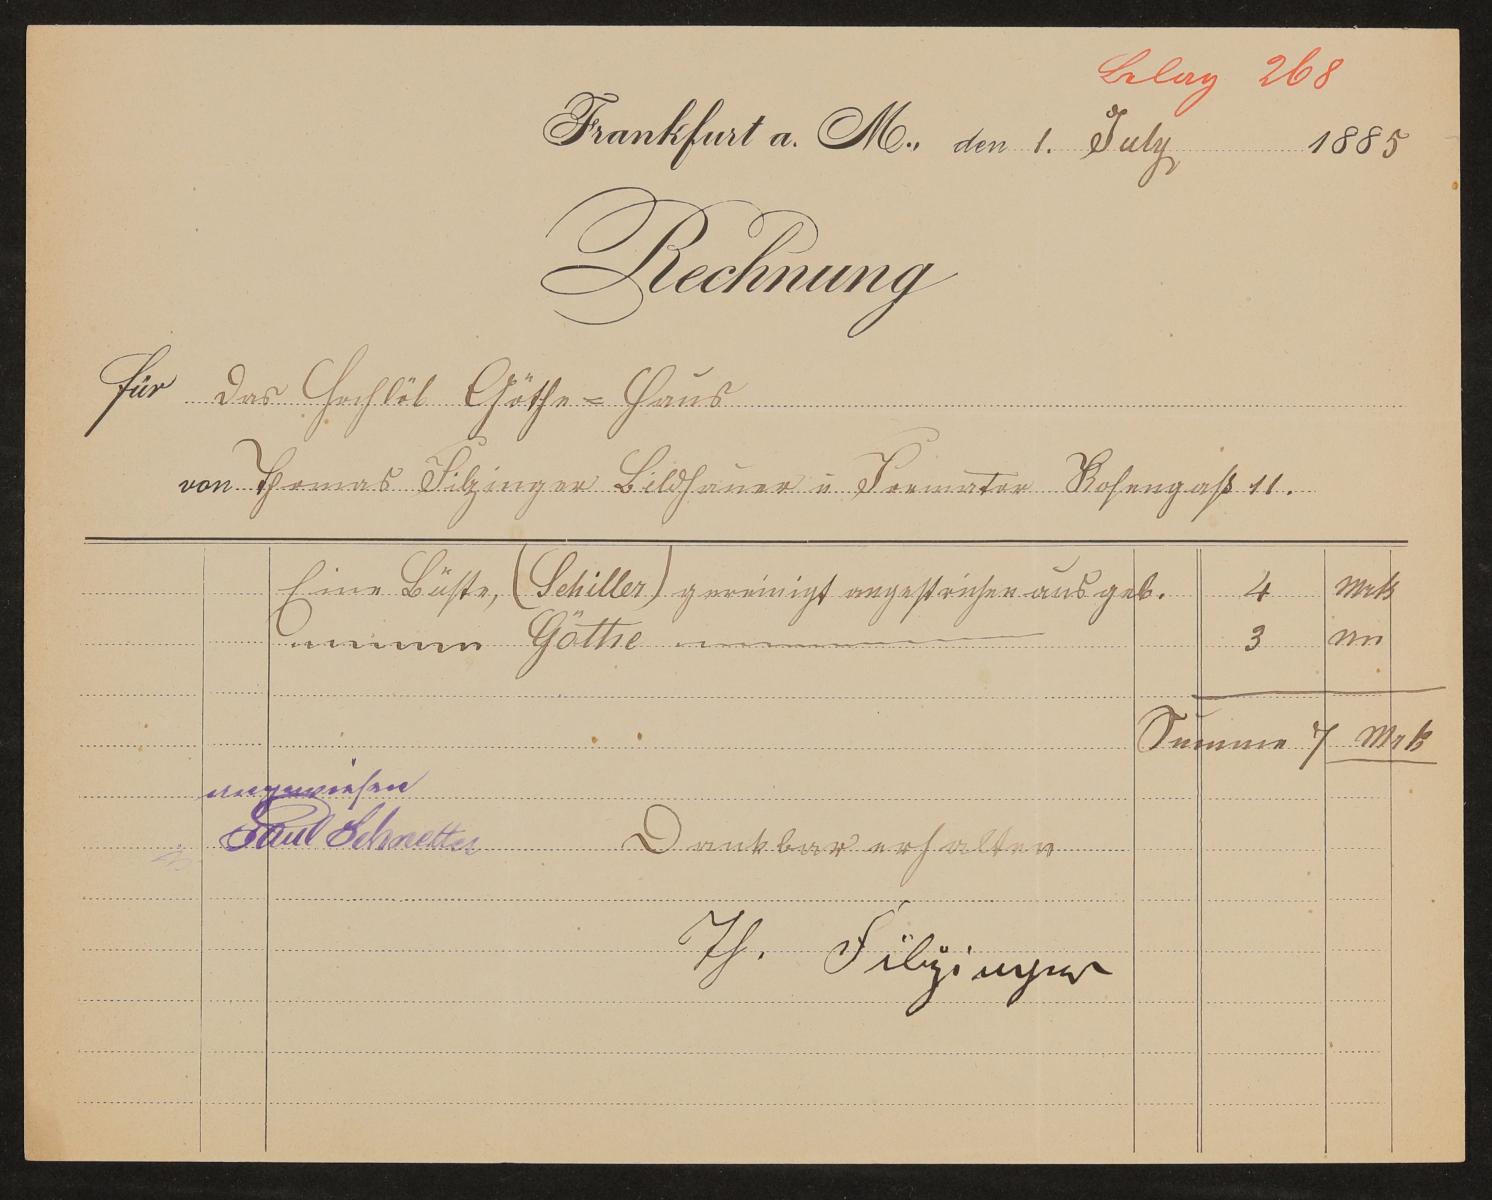 Beleg 268
Frankfurt a. M., den 1. July 1885
Rechnung
für Das Hochlöl Göthe=Haus
von Thomas Filzinger Bildhauer u Formator Rosengaß 11.
Eine Büste, (Schiller) gereinigt angestrichen ausgeb. 4 Mrk
Göthe 3
Summe 7 Mrk
angewiesen
Paul Schnetter
Dankbar erhalten
Th. Filzinger